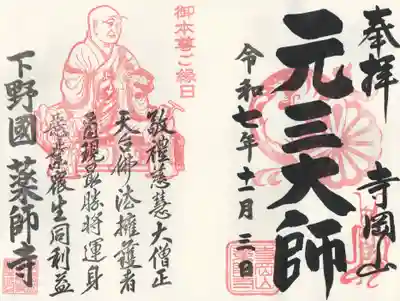 奉拝 寺岡山
元三大師
令和七年十一月三日
御本尊ご縁日
敬禮慈慧大僧正
天台佛法擁護者
現最勝将身
悪業衆生同利益
下野國 薬師寺